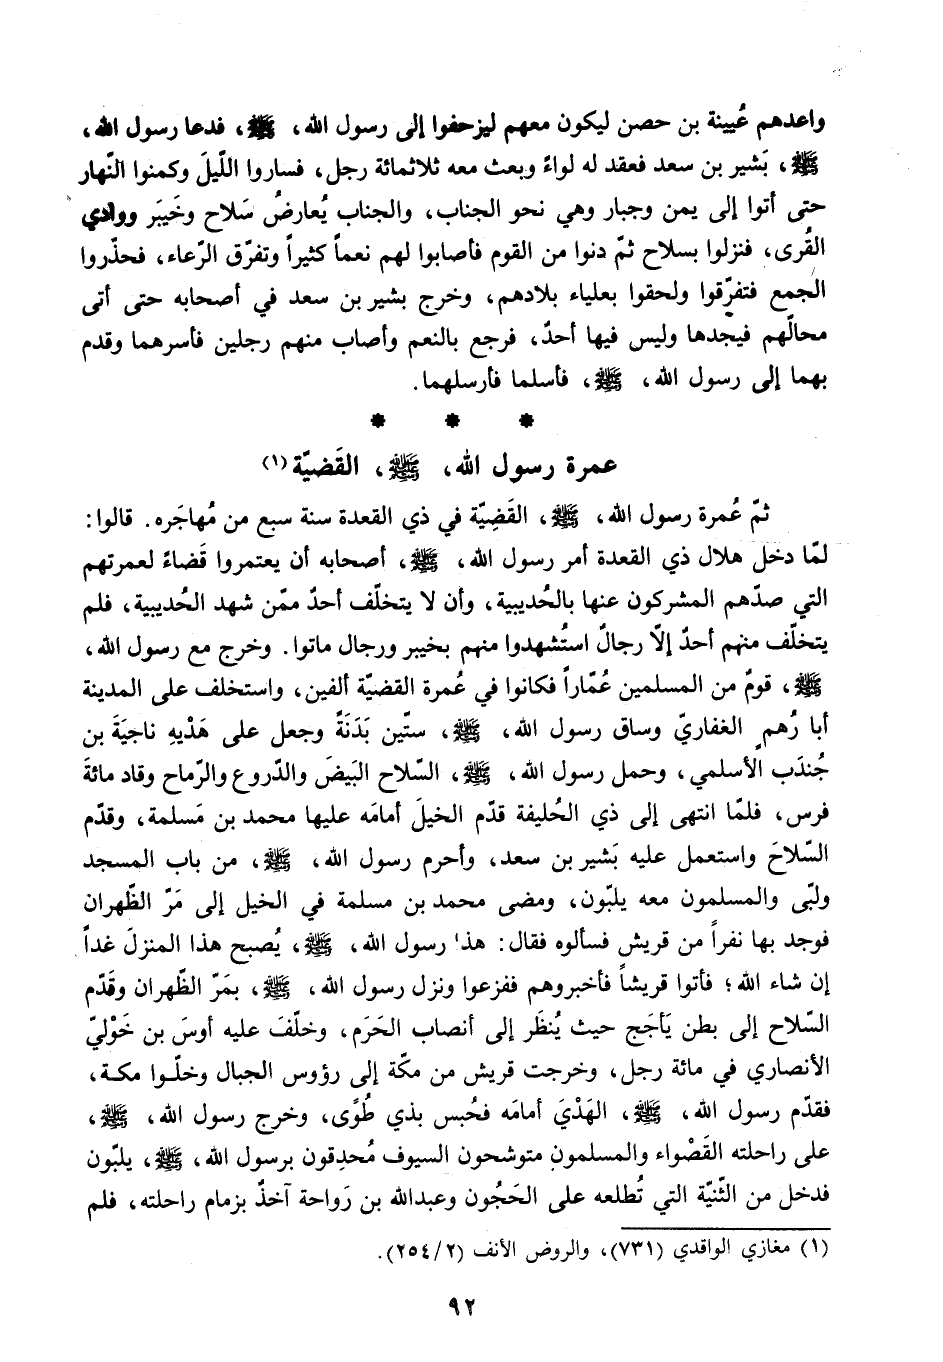 واعدهم عُيينة بن حصن ليكون معهم ليزحفوا إلى رسول الله، ﷺ، فدعا رسول الله،
ﷺ، بَشير بن سعد فعقد له لواءً وبعث معه ثلاثمائة رجل، فساروا اللّيلَ وكمنوا النّهار
حتى أتوا إلى يمن وجبار وهي نحو الجناب، والجناب يُعارضُ سَلاح وخَيبَر ووادي
القُرى، فنزلوا بسلاح ثمّ دنوا من القوم فأصابوا لهم نعماً كثيراً وتفرّق الرّعاء، فحذّروا
الجمع فتفرّقوا ولحقوا بعلياء بلادهم، وخرج بشير بن سعد في أصحابه حتى أتى
محالّهم فيجدها وليس فيها أحدٌ، فرجع بالنعم وأصاب منهم رجلين فأسرهما وقدم
بهما إلى رسول الله، ﷺ، فأسلما فأرسلهما.
* * *
عمرة رسول الله، ﷺ، القَضيّة (١)
ثمّ عُمرة رسول الله، ﷺ، القَضِيّة في ذي القعدة سنة سبع من مُهاجَره. قالوا:
لمّا دخل هلال ذي القعدة أمر رسول الله، ﷺ، أصحابه أن يعتمروا قَضاءً لعمرتهم
التي صدّهم المشركون عنها بالحُديبية، وأن لا يتخلّف أحدٌ ممّن شهد الحُديبية، فلم
يتخلّف منهم أحدٌ إلّا رجالٌ استُشهدوا منهم بخيبر ورجال ماتوا. وخرج مع رسول الله،
ﷺ، قومٌ من المسلمين عُمّاراً فكانوا في عُمرة القضيّة ألفين، واستخلف على المدينة
أبا رُهمٍ الغفاريّ وساق رسول الله، ﷺ، ستّين بَدَنَةً وجعل على هَدْيهِ ناجيَةَ بن
جُندَب الأسلمي، وحمل رسول الله، ﷺ، السّلاح البَيضَ والدّروع والرّماح وقاد مائةَ
فرس، فلمّا انتهى إلى ذي الحُليفة قدّم الخيلَ أمامَه عليها محمد بن مَسلمة، وقدّم
السّلاحَ واستعمل عليه بَشير بن سعد، وأحرم رسول الله، ﷺ، من باب المسجد
ولبّى والمسلمون معه يلبّون، ومضى محمد بن مسلمة في الخيل إلى مَرّ الظّهران
فوجد بها نفراً من قريش فسألوه فقال: هذا رسول الله، ﷺ، يُصبح هذا المنزلَ غداً
إن شاء الله؛ فأتوا قريشاً فأخبروهم ففزعوا ونزل رسول الله، ﷺ، بمَرّ الظّهران وقَدّم
السّلاح إلى بطن يَأجَج حيث يُنظَر إلى أنصاب الحَرَم، وخلّفَ عليه أوسَ بن خَوْليّ
الأنصاري في مائة رجل، وخرجت قريش من مكّة إلى رؤوس الجبال وخلّوا مكـة،
فقدّم رسول الله، ﷺ، الهَدْيَ أمامَه فحُبس بذي طُوًى، وخرج رسول الله، ﷺ،
على راحلته القَصْواء والمسلمون متوشحون السيوف مُحدِقون برسول الله، ﷺ، يلبّون
فدخل من الثّنيّة التي تُطلعه على الحَجُون وعبدالله بن رَواحة آخذٌ بزمام راحلته، فلم
(١) مغازي الواقدي (٧٣١)، والروض الأنف (٢/ ٢٥٤).
٩٢